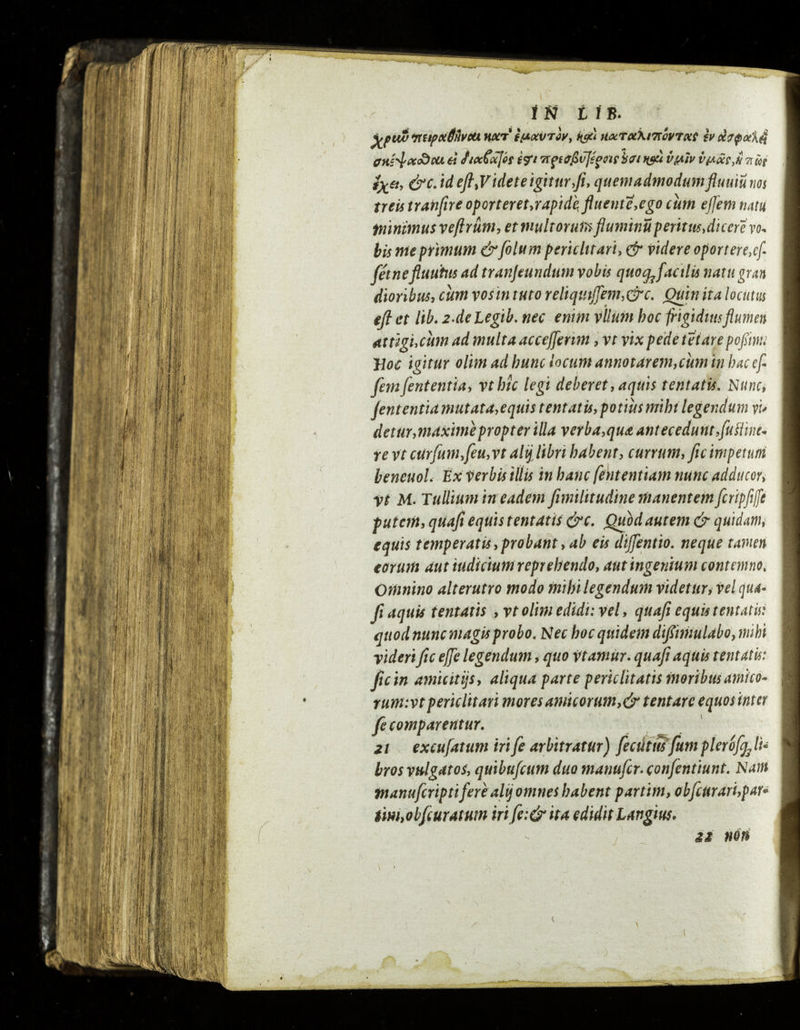 IN LIB.
χρεών πειραθῆναι κατ' ἐμαυτὸν, καὶ καταλιπόντας ἐν ἀσφαλεῖ
σκέψασθαι εἰ διαβατός ἐστι πρεσβυτέροις οὖσι καὶ ὑμῖν
ἔχει, &c. id est, Videte igitur, si, quemadmodum fluuiū nos
treis tranſire oporteret, rapidè fluentē, ego cùm eſſem natu
minimus veſtrûm, et multorum fluminū peritus, dicerē vo-
bis me primum & ſolum periclitari, & videre oportere, eſ-
ſét ne fluuius ad tranſeundum vobis quoq; facilis natu gran
dioribus, cùm vos in tuto reliquiſſem, &c. Quin ita locutus
eſt et lib. 2. de Legib. nec enim vllum hoc frigidius flumen
attigi, cùm ad multa acceſſerim, vt vix pede tētare poßim.
Hoc igitur olim ad hunc locum annotarem, cùm in hac eſ-
ſem ſententia, vt hîc legi deberet, aquis tentatis. Nunc,
ſententia mutata, equis tentatis, potiùs mihi legendum vi-
detur, maximè propter illa verba, quæ antecedunt, ſuſtine-
re vt curſum, ſeu, vt alij libri habent, currum, ſic impetum
beneuol. Ex verbis illis in hanc ſententiam nunc adducor,
vt M. Tullium in eadem ſimilitudine manentem ſcripſiſſe
putem, quaſi equis tentatis &c. Quòd autem & quidam,
equis temperatis, probant, ab eis diſſentio. neque tamen
eorum aut iudicium reprehendo, aut ingenium contemno.
Omnino alterutro modo mihi legendum videtur, vel qua-
ſi aquis tentatis, vt olim edidi: vel, quaſi equis tentatis:
quod nunc magis probo. Nec hoc quidem dißimulabo, mihi
videri ſic eſſe legendum, quo vtamur. quaſi aquis tentatis:
ſic in amicitijs, aliqua parte periclitatis moribus amico-
rum: vt periclitari mores amicorum, & tentare equos inter
ſe comparentur.
21 excuſatum iri ſe arbitratur) ſecutus ſum pleróſq; li-
bros vulgatos, quibuſcum duo manuſcr. conſentiunt. Nam
manuſcripti ferè alij omnes habent partim, obſcurari, par-
tim, obſcuratum iri ſe: & ita edidit Langius.
22 non